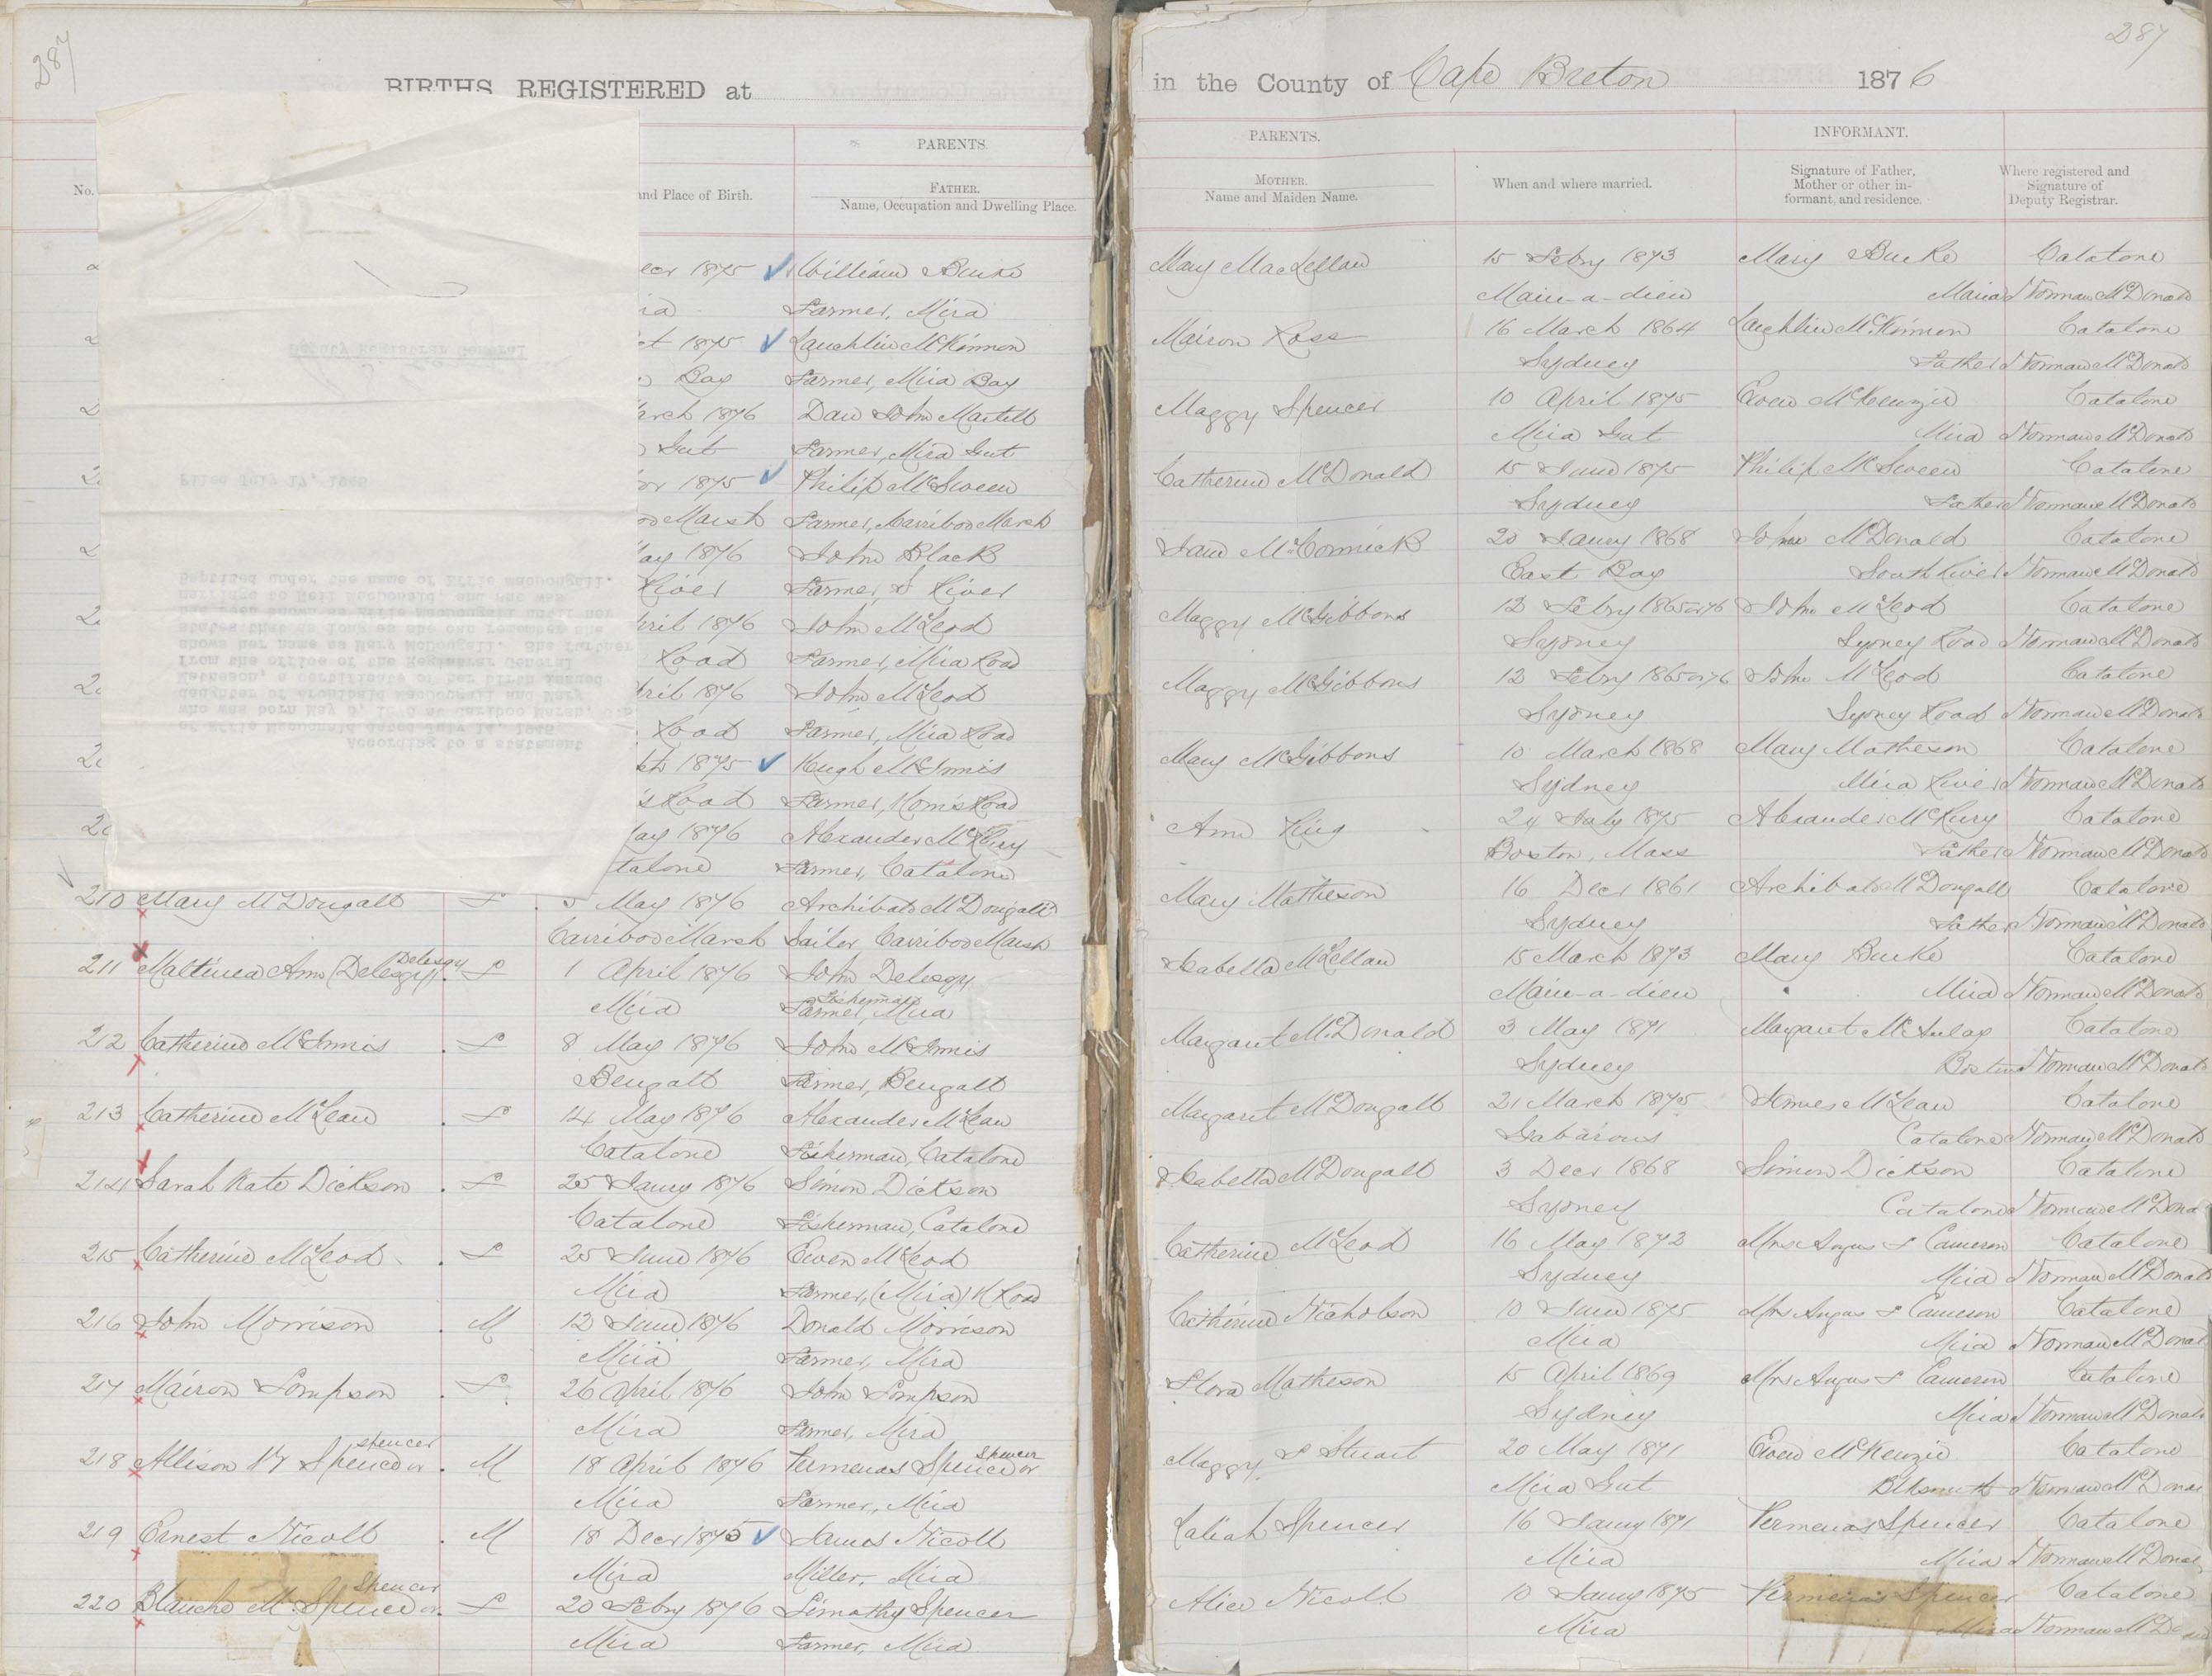 287
BIRTHS REGISTERED at
No.
and Place of Birth.
PARENTS.
FATHER.
Name, Occupation and Dwelling Place.
ecr 1875 ✓ William Burke
ia Farmer, Mira
ct 1875 ✓ Lauchlin McKinnon
Bay Farmer, Mira Bay
arch 1876 Dan John Martell
Gut Farmer, Mira Gut
1875 ✓ Philip McSween
Marsh Farmer, Carriboo Marsh
ay 1876 John Black
River Farmer, S River
pril 1876 John McLeod
Road Farmer, Mira Road
pril 1876 John McLeod
Road Farmer, Mira Road
1875 ✓ Hugh McInnis
's Road Farmer, Morris Road
ay 1876 Alexander McKury
talone Farmer, Catalone
Deputy Registrar General
Filed July 17, 1945
According to a statement
of Effie MacDonald dated July 14, 1945
who was born May 5, 1876 at Cariboo Marsh, C.B.
daughter of Archibald MacDougall and Mary
Matheson, a certificate of her birth issued
from the office of the Registrar General
shows her name as Mary McDougall. She further
states that as long as she can remember she
has been known as Effie MacDougall until her
marriage to Neil MacDonald, and she was
Baptised under the name of Effie MacDougall.
210 Mary McDougall F 5 May 1876 Archibald McDougall
Carriboo Marsh Sailor Carriboo Marsh
Delesgy
211 Maltinea Ann (Delesgy) F 1 April 1876 John Delesgy
Fisherman
Mira Farmer, Mira
212 Catherine McInnis F 8 May 1876 John McInnis
Bengall Farmer, Bengall
213 Catherine McLean F 14 May 1876 Alexander McLean
Catalone Fisherman, Catalone
214 Sarah Kate Dickson F 25 Jany 1876 Simon Dickson
Catalone Fisherman, Catalone
215 Catherine McLeod F 25 June 1876 Ewen McLeod
Mira Farmer, (Mira) M Road
216 John Morrison M 12 June 1876 Donald Morrison
Mira Farmer, Mira
217 Mairon Tompson F 26 April 1876 John Tompson
Mira Farmer, Mira
Spencer Spencer
218 Allison W Spencer or M 18 April 1876 Permenas Spencer or
Mira Farmer, Mira
219 Ernest Nicoll M 18 Decr 1875 ✓ James Nicoll
Mira Miller, Mira
Spencer
220 Blanche M. Spencer or F 20 Febry 1876 Timothy Spencer
Mira Farmer, Mira
287
in the County of Cape Breton 1876
PARENTS.
INFORMANT.
MOTHER.
Name and Maiden Name.
When and where married.
Signature of Father,
Mother or other in-
formant, and residence.
Where registered and
Signature of
Deputy Registrar.
Mary MacLellan 15 Febry 1873 Mary Burke Catalone
Main-a-dieu Norman McDonald
Mairon Ross 16 March 1864 Lauchlin McKinnon Catalone
Sydney Father Norman McDonald
Maggy Spencer 10 April 1875 Ewen McKenzie Catalone
Mira Gut Mira Norman McDonald
Catherine McDonald 15 June 1875 Philip McSween Catalone
Sydney Father Norman McDonald
Jane McCormick 20 Jany 1868 John McDonald Catalone
East Bay South River Norman McDonald
Maggy McGibbons 12 Febry 1865 or 76 John McLeod Catalone
Sydney Sydney Road Norman McDonald
Maggy McGibbons 12 Febry 1865 or 76 John McLeod Catalone
Sydney Sydney Road Norman McDonald
Mary McGibbons 10 March 1868 Mary Matheson Catalone
Sydney Mira River Norman McDonald
Ann King 24 July 1875 Alexander McKury Catalone
Boston, Mass Father Norman McDonald
Mary Matheson 16 Decr 1861 Archibald McDougall Catalone
Sydney Father Norman McDonald
Isabella McLellan 15 March 1873 Mary Burke Catalone
Main-a-dieu Mira Norman McDonald
Margaret McDonald 3 May 1871 Margaret McAulay Catalone
Sydney Boston Norman McDonald
Margaret McDougall 21 March 1875 James McLean Catalone
Gabarous Catalone Norman McDonald
Isabella McDougall 3 Decr 1868 Simon Dickson Catalone
Sydney Catalone Norman McDona
Catherine McLeod 16 May 1872 Mrs Angus F Cameron Catalone
Sydney Mira Norman McDonald
Catherine Nicholson 10 June 1875 Mrs Angus F Cameron Catalone
Mira Mira Norman McDonal
Flora Matheson 15 April 1869 Mrs Angus F Cameron Catalone
Sydney Mira Norman McDonald
Maggy F Stuart 20 May 1871 Ewen McKenzie Catalone
Mira Gut Blksmith Norman McDonal
Laliah Spencer 16 Jany 1871 Permenas Spencer Catalone
Mira Mira Norman McDonal
Alice Nicoll 10 Jany 1875 Permenas Spencer Catalone
Mira Mira Norman McD